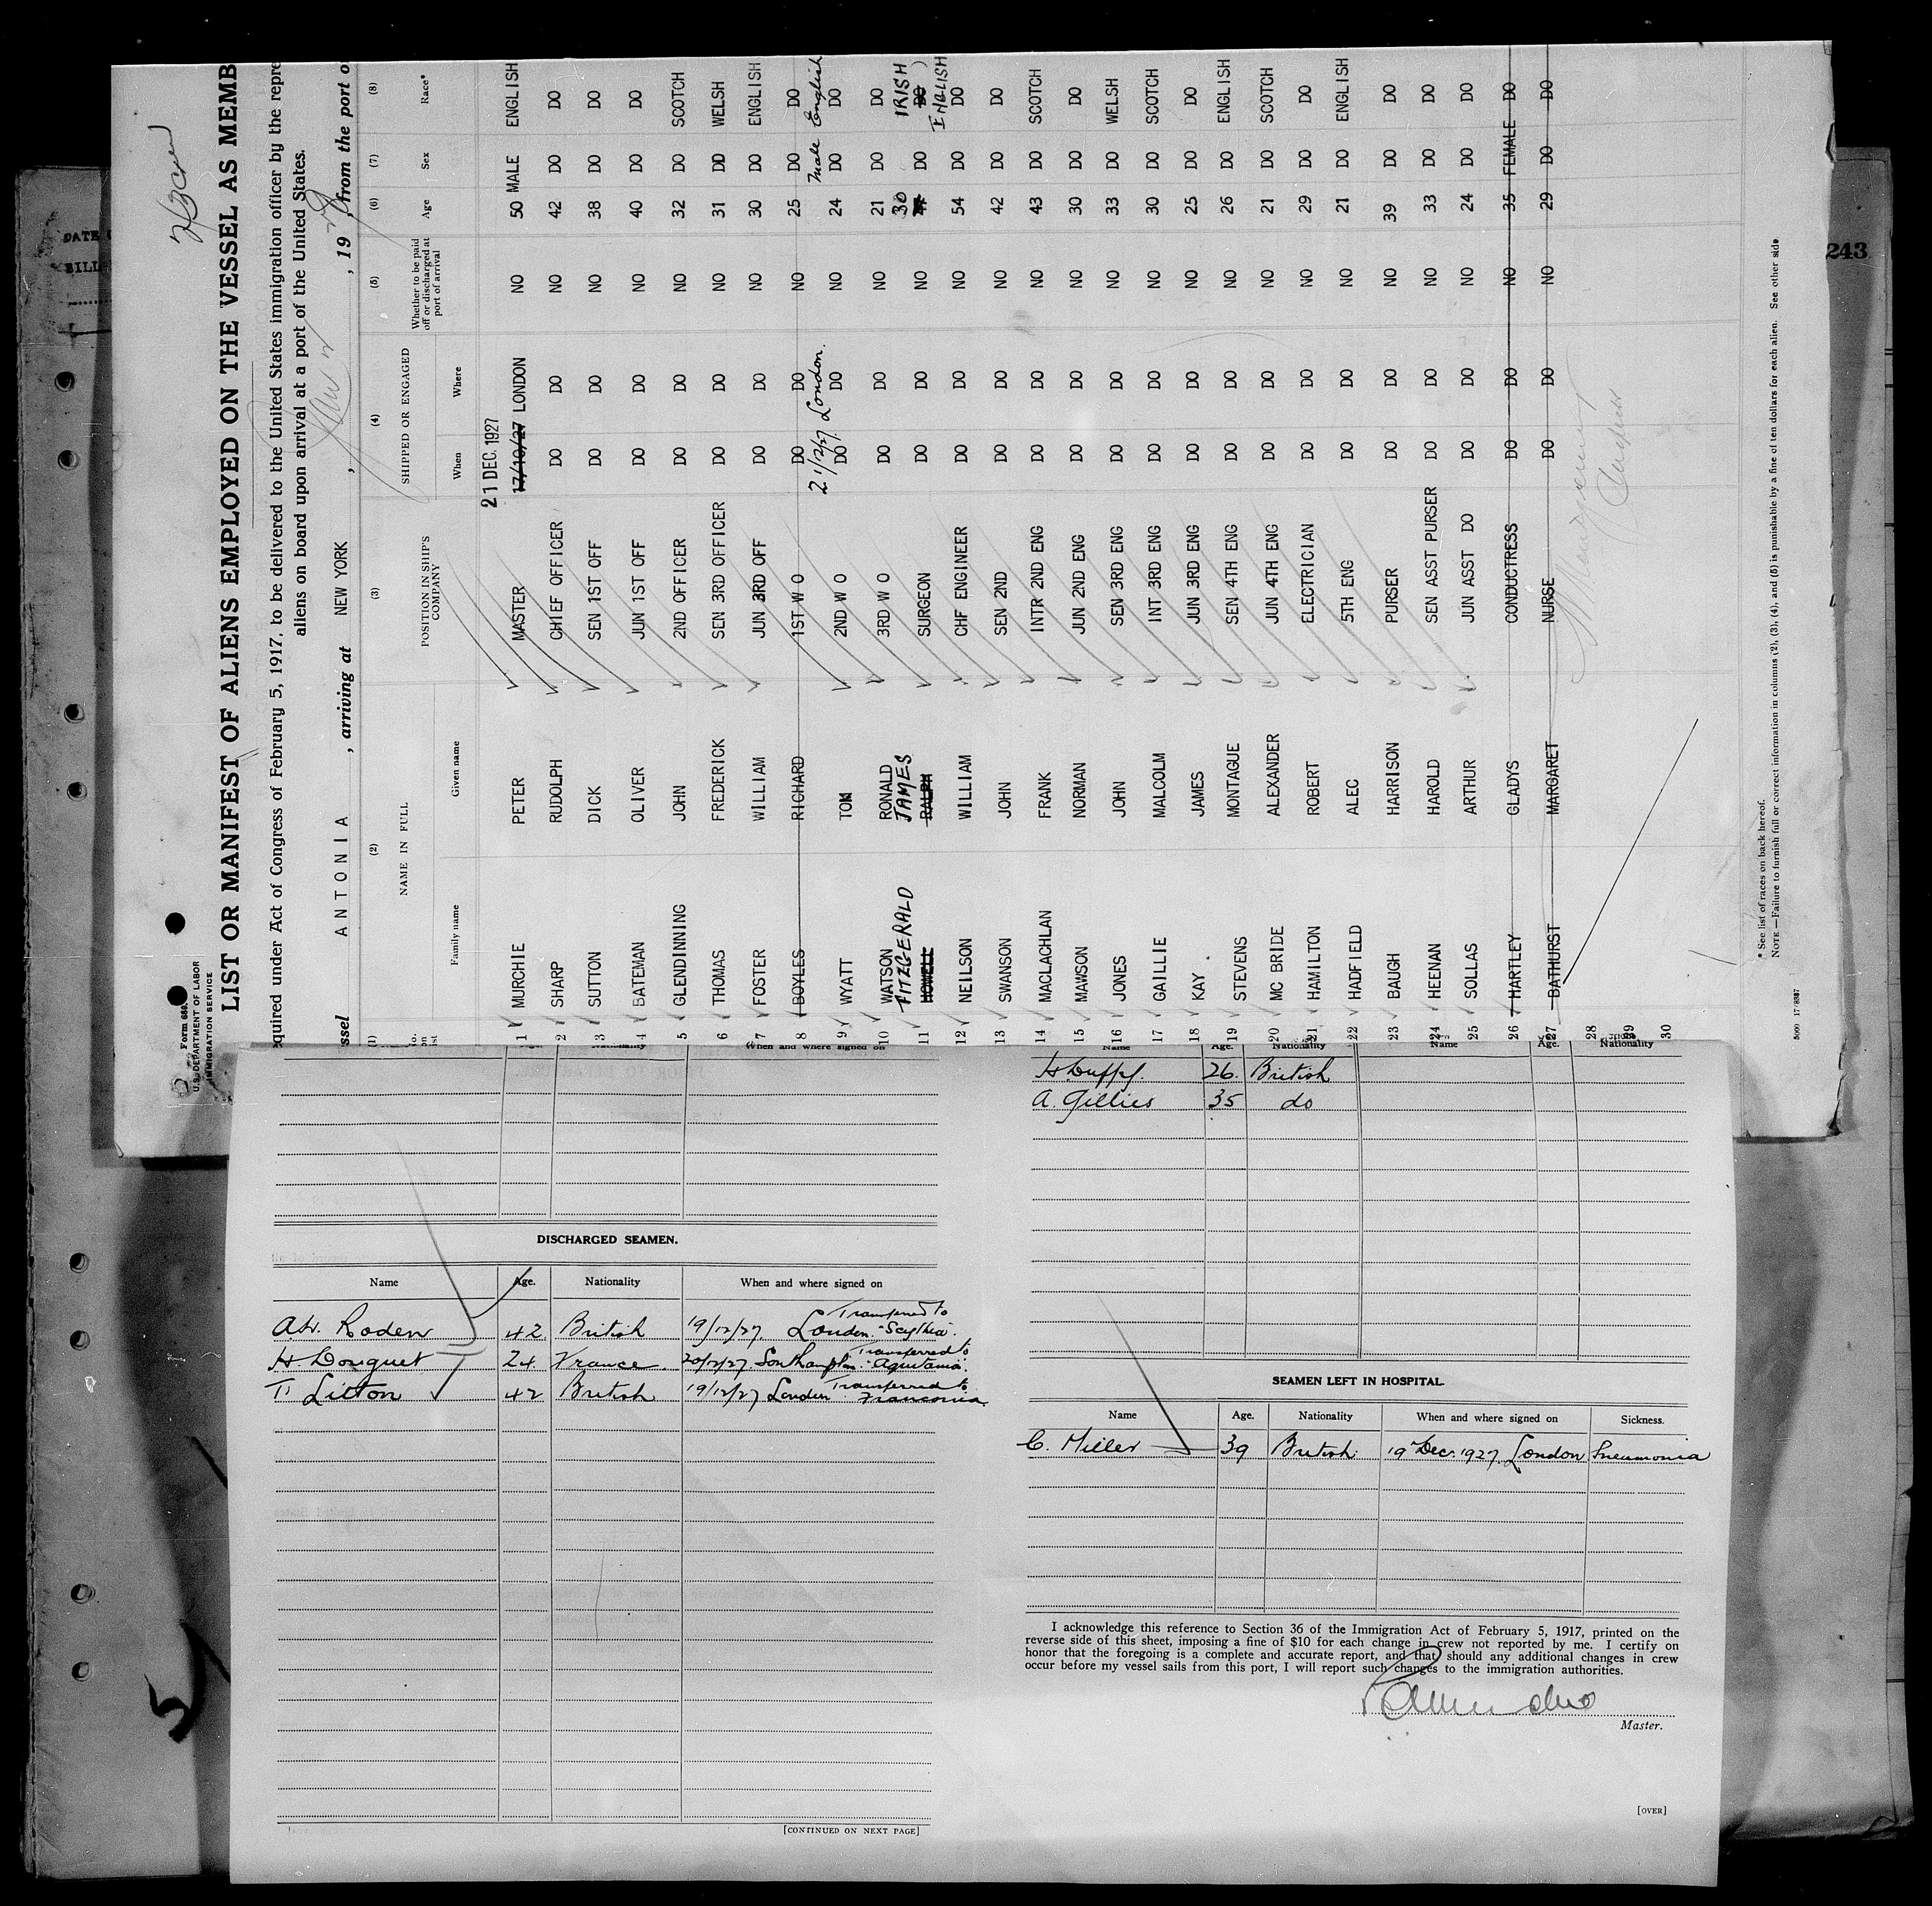 243
Form 680
U.S. DEPARTMENT OF LABOR
IMMIGRATION SERVICE
LIST OR MANIFEST OF ALIENS EMPLOYED ON THE VESSEL AS MEMB
equired under Act of Congress of February 5, 1917, to be delivered to the United States immigration officer by the repre
aliens on board upon arrival at a port of the United States.
ssel ANTONIA , arriving at NEW YORK , , 19 , from the port o
(1) (2) (3) (4) (5) (6) (7) (8)
NAME IN FULL POSITION IN SHIP'S COMPANY SHIPPED OR ENGAGED Whether to be paid off or discharged at port of arrival Age Sex Race*
Family name Given name When Where
21 DEC. 1927
1 MURCHIE PETER MASTER 17/10/27 LONDON NO 50 MALE ENGLISH
2 SHARP RUDOLPH CHIEF OFFICER DO DO NO 42 DO DO
3 SUTTON DICK SEN 1ST OFF DO DO NO 38 DO DO
4 BATEMAN OLIVER JUN 1ST OFF DO DO NO 40 DO DO
5 GLENDINNING JOHN 2ND OFFICER DO DO NO 32 DO SCOTCH
6 THOMAS FREDERICK SEN 3RD OFFICER DO DO NO 31 DO WELSH
7 FOSTER WILLIAM JUN 3RD OFF DO DO NO 30 DO ENGLISH
8 BOYLES RICHARD 1ST W O DO DO NO 25 DO DO
21/12/27 London. male English
9 WYATT TOM 2ND W O DO DO NO 24 DO DO
10 WATSON RONALD 3RD W O DO DO NO 21 DO DO
FITZGERALD JAMES 30 IRISH
11 HOWELL RALPH SURGEON DO DO NO DO DO
ENGLISH
12 NEILSON WILLIAM CHF ENGINEER DO DO NO 54 DO DO
13 SWANSON JOHN SEN 2ND DO DO NO 42 DO DO
14 MACLACHLAN FRANK INTR 2ND ENG DO DO NO 43 DO SCOTCH
15 MAWSON NORMAN JUN 2ND ENG DO DO NO 30 DO DO
16 JONES JOHN SEN 3RD ENG DO DO NO 33 DO WELSH
17 GAILLIE MALCOLM INT 3RD ENG DO DO NO 30 DO SCOTCH
18 KAY JAMES JUN 3RD ENG DO DO NO 25 DO DO
19 STEVENS MONTAGUE SEN 4TH ENG DO DO NO 26 DO ENGLISH
20 MC BRIDE ALEXANDER JUN 4TH ENG DO DO NO 21 DO SCOTCH
21 HAMILTON ROBERT ELECTRICIAN DO DO NO 29 DO DO
22 HADFIELD ALEC 5TH ENG DO DO NO 21 DO ENGLISH
23 BAUGH HARRISON PURSER DO DO NO 39 DO DO
24 HEENAN HAROLD SEN ASST PURSER DO DO NO 33 DO DO
25 SOLLAS ARTHUR JUN ASST DO DO DO NO 24 DO DO
26 HARTLEY GLADYS CONDUCTRESS DO DO NO 35 FEMALE DO
27 BATHURST MARGARET NURSE DO DO NO 29 DO DO
28
29
30
* See list of races on back hereof.
NOTE.—Failure to furnish full or correct information in columns (2), (3), (4), and (5) is punishable by a fine of ten dollars for each alien. See other side
When and where signed on
DISCHARGED SEAMEN.
Name Age. Nationality When and where signed on
A.W. Roden 42 British 19/12/27. London. Transferred to "Scythia".
H. Douguet 24 France 20/12/27. Southampton. Transferred to "Aquitania".
T. Litton 42 British 19/12/27 London Transferred to Franconia.
[CONTINUED ON NEXT PAGE]
Name Age. Nationality Name Age. Nationality
H. Duffy. 26. British
A. Gillies 35 do
SEAMEN LEFT IN HOSPITAL.
Name Age. Nationality When and where signed on Sickness.
C. Miller 39 British 19 Dec. 1927. London Pneumonia
I acknowledge this reference to Section 36 of the Immigration Act of February 5, 1917, printed on the
reverse side of this sheet, imposing a fine of $10 for each change in crew not reported by me. I certify on
honor that the foregoing is a complete and accurate report, and that should any additional changes in crew
occur before my vessel sails from this port, I will report such changes to the immigration authorities.
Master.
[OVER]